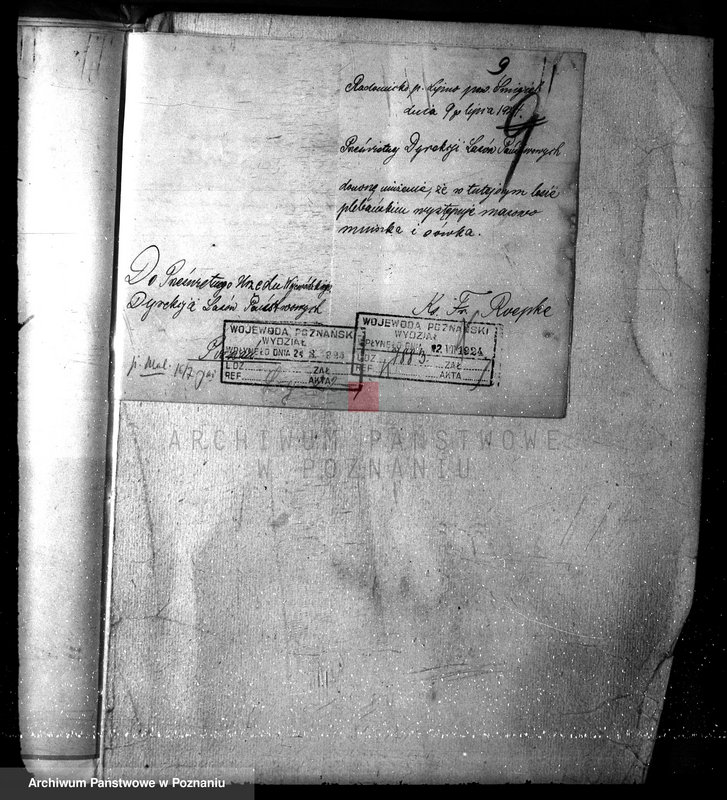 9
Radomicko p. Lipno pow. Śmigiel
dnia 9go lipca 1924.
Dyrekcji Lasów Państwowych
donoszę uniżenie, że w tutejszym lesie
plebańskim występuje masowo
mniszka i sówka.
Ks. Fr. Roepke
Do Prześwietnego Urzędu
Dyrekcja Lasów Państwowych
Poznań
WOJEWODA POZNAŃSK
WYDZIAŁ
WPŁYNĘŁO DNIA 24
L.DZ. ZAŁ
REF. AKTA
WOJEWODA POZNAŃSKI
WYDZIAŁ
WPŁYNĘŁO 12 VII 1924
L.DZ. ZAŁ
REF. AKTA
p. Mal. 15/7
ARCHIWUM PAŃSTWOWE
W POZNANIU
Archiwum Państwowe w Poznaniu